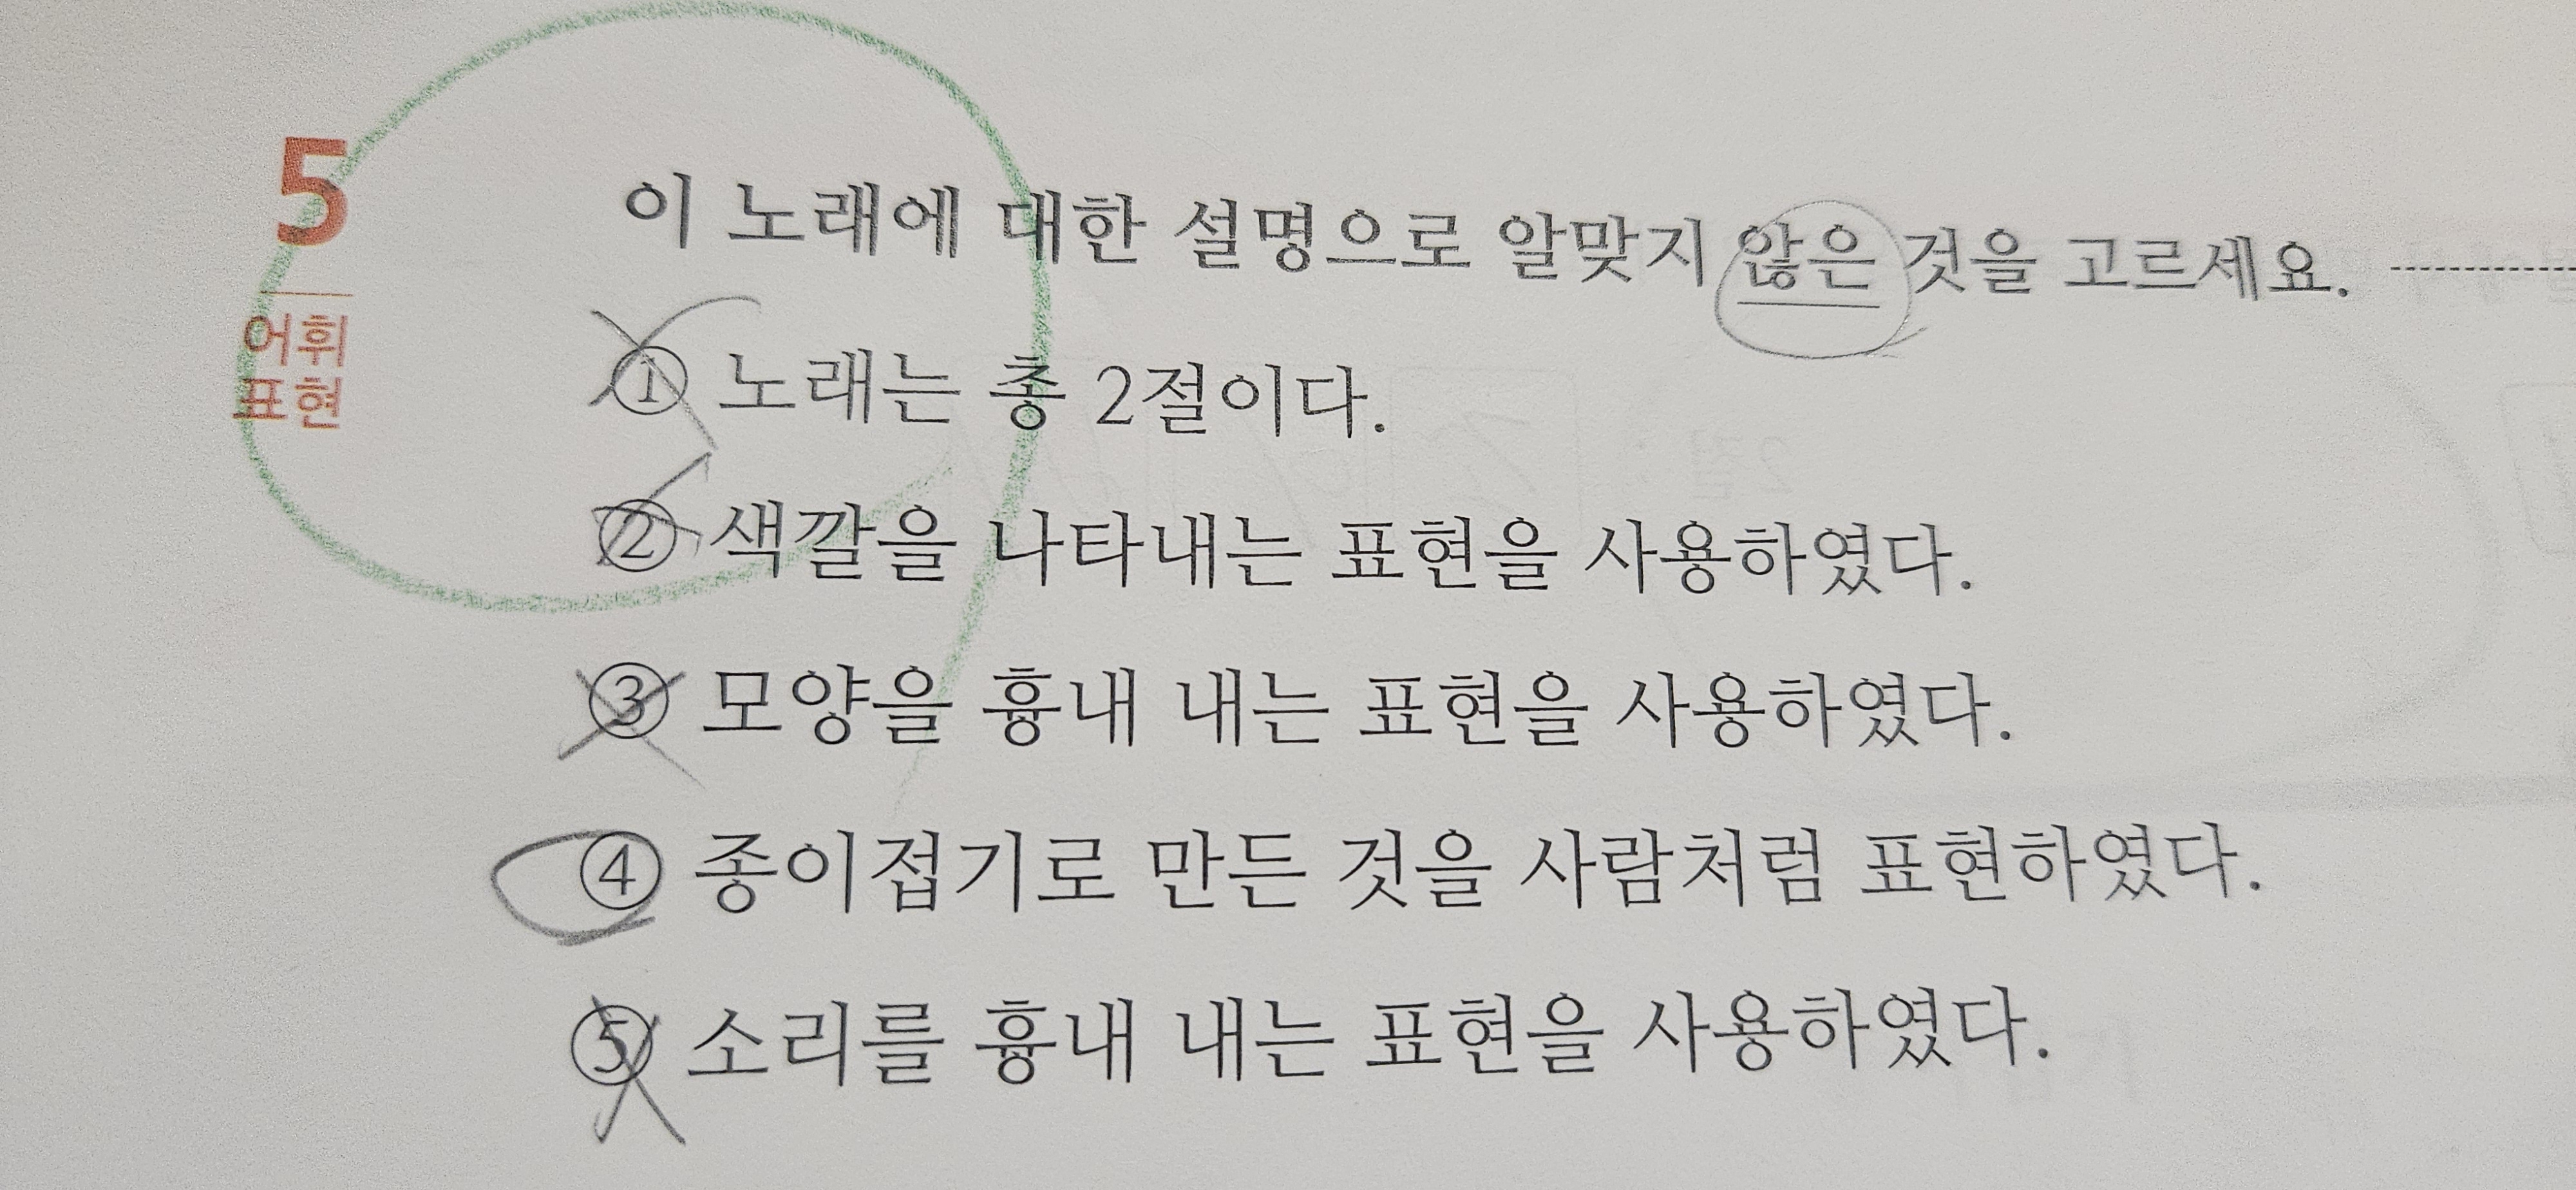 5
어휘
표현
이 노래에 대한 설명으로 알맞지 않은 것을 고르세요.
① 노래는 총 2절이다.
② 색깔을 나타내는 표현을 사용하였다.
③ 모양을 흉내 내는 표현을 사용하였다.
④ 종이접기로 만든 것을 사람처럼 표현하였다.
⑤ 소리를 흉내 내는 표현을 사용하였다.